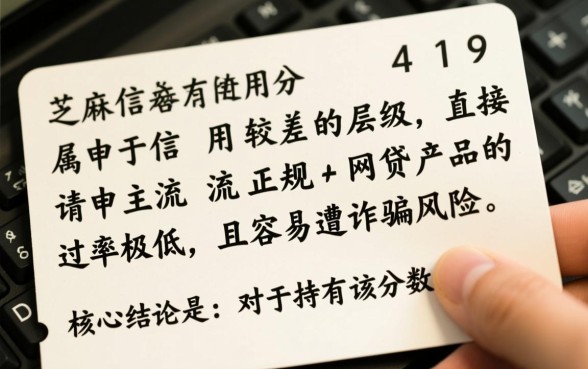 芝麻信 有 用分 419
属申于信 用较差的层级，直接
请申主流 流正规+网贷产品的
过率极低，且容易遭诈骗风险。
核心结论是：对于持有该分数
D